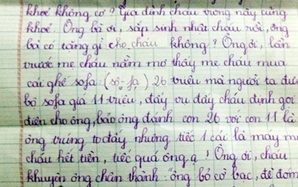 khoẻ không cơ? Gia đình cháu trong này cũng
khoẻ. Ông bà ơi, sắp sinh nhật cháu rồi, ông
bà có tặng gì cho cháu không? Ông ơi, lần
trước mẹ cháu nằm mơ thấy mẹ cháu mua
cái ghế sofa (sô-fa) 26 triệu mà người ta đưa
bộ sofa giá 11 triệu, đấy vụ đấy cháu định gọi
điện cho ông, bảo ông đánh con 26 với con 11 là
ông trúng to đấy nhưng tiếc 1 cái là máy mẹ
cháu hết tiền, tiếc quá ông ạ! Ông ơi, cháu
khuyên ông chân thành: ông bỏ cờ bạc, đề đóm